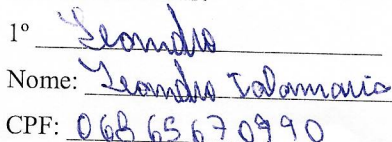 1º Leandro
Nome: Leandro Talamaria
CPF: 06865670990